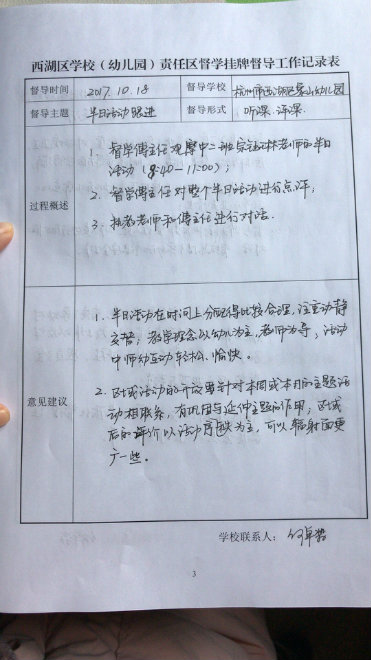 西湖区学校（幼儿园）责任区督学挂牌督导工作记录表
督导时间 2017.10.18 督导学校 杭州市西湖区象山幼儿园
督导主题 半日活动跟进 督导形式 听课.评课
过程概述
1. 督学傅主任观摩中二班 林老师的半日
活动（8:40-11:00）；
2. 督学傅主任对整个半日活动进行点评；
3. 执教老师和傅主任进行对话.
意见建议
1. 半日活动在时间上分配得比较合理，注重动静
交替；教学理念以幼儿为主，教师为导，活动
中师幼互动轻松、愉快。
2. 区域活动的开放要针对本周或本月的主题活
动相联系，有巩固与延伸主题的作用；区域
后的评价以活动 为主，可以辐射面更
广一些。
学校联系人：
3